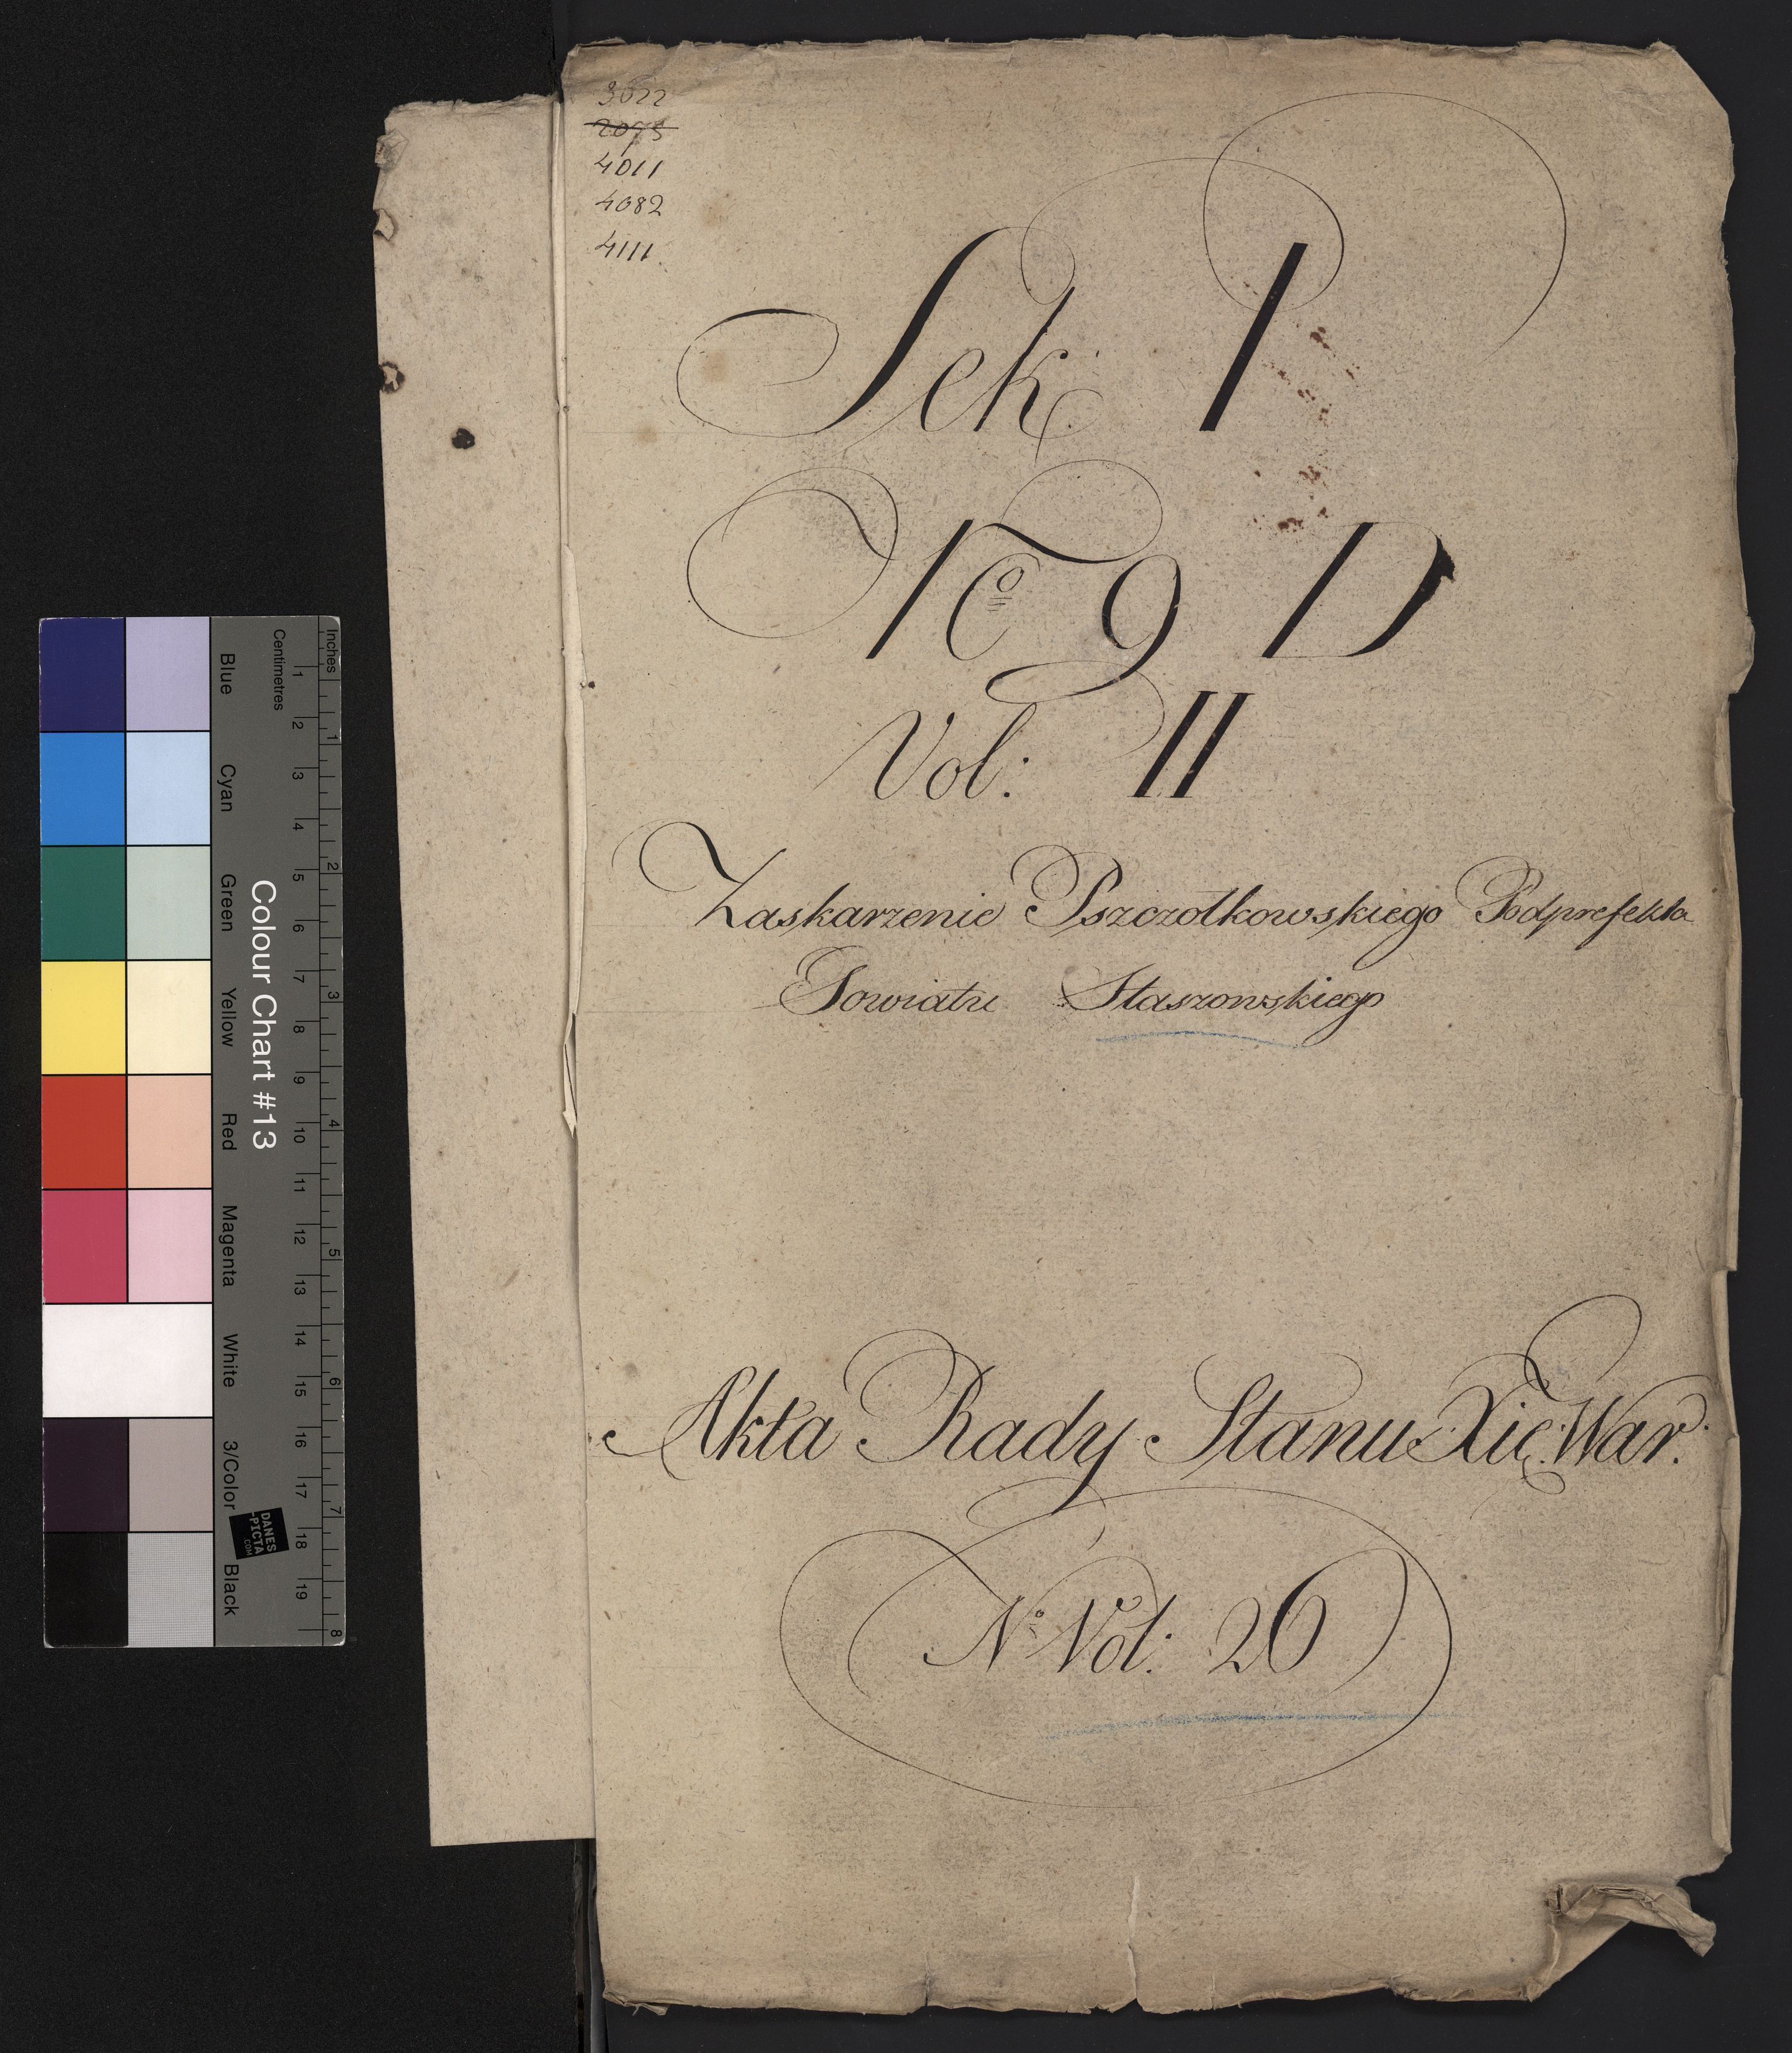 3622
2095
4011
4082
4111
Sek: I
No 9 D
Vol: II
Zaskarzenie Pszczołkowskiego Podprefekta
Powiatu Staszowskiego
Akta Rady Stanu Xię: War:
No Vol: 26
Inches
Centimetres
1 2 3 4 5 6 7 8 9 10 11 12 13 14 15 16 17 18 19
1 2 3 4 5 6 7 8
Colour Chart #13
Blue Cyan Green Yellow Red Magenta White 3/Color Black
DANES
-PICTA
.COM